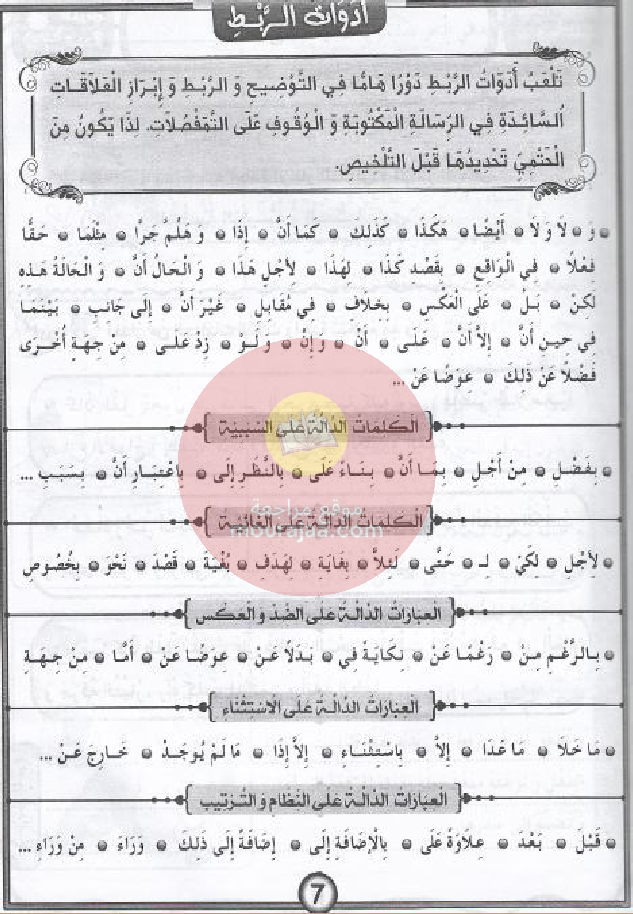 أَدَوَاتُ الرَّبْطِ
تَلْعَبُ أَدَوَاتُ الرَّبْطِ دَوْرًا هَامًّا فِي التَّوْضِيحِ وَ الرَّبْطِ وَ إِبْرَازِ الْعَلاَقَاتِ
السَّائِدَةِ فِي الرِّسَالَةِ الْمَكْتُوبَةِ وَ الْوُقُوفِ عَلَى التَّمَفْصُلاَتِ. لِذَا يَكُونُ مِنَ
الْحَتْمِيِّ تَحْدِيدُهَا قَبْلَ التَّلْخِيصِ.
● وَ ● لاَ وَ لاَ ● أَيْضًا ● هَكَذَا ● كَذَلِكَ ● كَمَا أَنَّ ● إِذًا ● وَ هَلُمَّ جَرًّا ● مِثْلَمَا ● حَقًّا
فِعْلاً ● فِي الْوَاقِعِ ● بِقَصْدِ كَذَا ● لِهَذَا ● لِأَجْلِ هَذَا ● وَ الْحَالُ أَنَّ ● وَ الْحَالَةُ هَذِهِ
لَكِنْ ● بَلْ ● عَلَى الْعَكْسِ ● بِخِلاَفِ ● فِي مُقَابِلِ ● غَيْرَ أَنَّ ● إِلَى جَانِبِ ● بَيْنَمَا
فِي حِينِ أَنَّ ● إِلاَّ أَنَّ ● عَلَى ● أَنَّ ● وَإِنْ ● وَ لَوْ ● زِدْ عَلَى ● مِنْ جِهَةٍ أُخْرَى
فَضْلاً عَنْ ذَلِكَ ● عِوَضًا عَنْ ...
الْكَلِمَاتُ الدَّالَّةُ عَلَى السَّبَبِيَّةِ
● بِفَضْلِ ● مِنْ أَجْلِ ● بِمَا أَنَّ ● بِنَاءً عَلَى ● بِالنَّظَرِ إِلَى ● بِاعْتِبَارِ أَنَّ ● بِسَبَبِ ...
موقع مراجعة
mourajaa.com
الْكَلِمَاتُ الدَّالَّةُ عَلَى الْغَائِيَّةِ
● لِأَجْلِ ● لِكَيْ ● لِـ ● حَتَّى ● لِئَلاَّ ● بِغَايَةِ ● لِهَدَفِ ● بُغْيَةَ ● قَصْدَ ● نَحْوَ ● بِخُصُوصِ
الْعِبَارَاتُ الدَّالَّةُ عَلَى الضِّدِّ وَ الْعَكْسِ
● بِالرَّغْمِ مِنْ ● رَغْمًا عَنْ ● نِكَايَةً فِي ● بَدَلاً عَنْ ● عِوَضًا عَنْ ● أَمَّا ● مِنْ جِهَةِ
الْعِبَارَاتُ الدَّالَّةُ عَلَى الاسْتِثْنَاءِ
● مَا خَلاَ ● مَا عَدَا ● إِلاَّ ● بِاسْتِثْنَاءِ ● إِلاَّ إِذَا ● مَا لَمْ يُوجَدْ ● خَارِجَ عَنْ ...
الْعِبَارَاتُ الدَّالَّةُ عَلَى النِّظَامِ وَ التَّرْتِيبِ
● قَبْلَ ● بَعْدَ ● عِلاَوَةً عَلَى ● بِالْإِضَافَةِ إِلَى ● إِضَافَةً إِلَى ذَلِكَ ● وَرَاءَ ● مِنْ وَرَاءِ ...
7